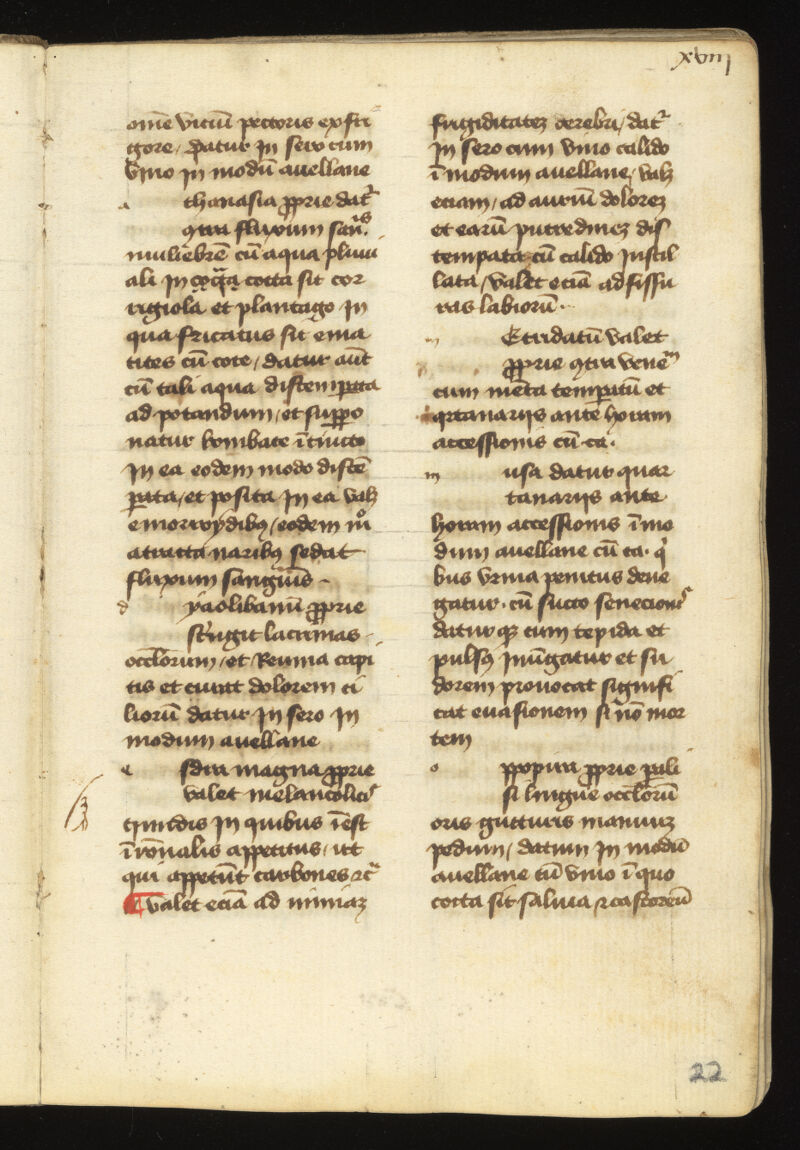 xviij
om̄e viciū pectoris ex fri
gore / Datur in sero cum
vino in modū auellane
a thanasia ꝓprie dat᷑
ꝯtra fluxum san̄s
muliebrē cū aqua pluui
ali in cocta sit cor
rigiola et plantago in
qua fricatus sit ema
tites cū cote / datur aūt
cū tali aqua distemꝑata
ad potandum / et suppo
natur bombace ītincto
in ea eodem modo distē
ꝑata / et posita in ea valꝫ
emorroydibꝫ / eodem mͦ
atracta naribꝫ sedat
fluxum sanguīs
d yaolibanū ꝓprie
st'ngit lacrimas
oculorum / et Reuma capi
tis et curat dolorem ci
liorū datur in sero in
modum auellane
e sdra magna ꝓprie
valet melancolicis
timidis in quibus īest
īrōnalis appetitus / ut
qui appetūt carbones ⁊c᷑
valet eciā ad nimiaꝫ
frigiditateꝫ cerebri / dat᷑
in sero cum vino calido
ī modum auellane / valꝫ
eciam / ad auriū doloreꝫ
et earū putredineꝫ dis
temꝑata cū calido instil
lata / valet eciā ad fissu
ras labiorū
m Etridatū valet
ꝓprie ꝯtra venen̄
cum menta temꝑatū et
qrtanariis ante horam
accessionis cū ca
m usa datur quar
tanariis ante
horam accessionis ī mo
dum auellane cū ca · qi
bus vrina penitus dene
gatur · cū succo senecionis
datur qꝫ cum tepida et
pulsꝫ inūgatur et su
dorem prouocat signifi
cat euasionem si nō mor
tem
o ppopira ꝓprie ꝑali
si lingue oculorū
oris gutturis manuuꝫ
pedum / datum in modū
auellane cū vino ī quo
cocta sit saluia ⁊ castoreū
22